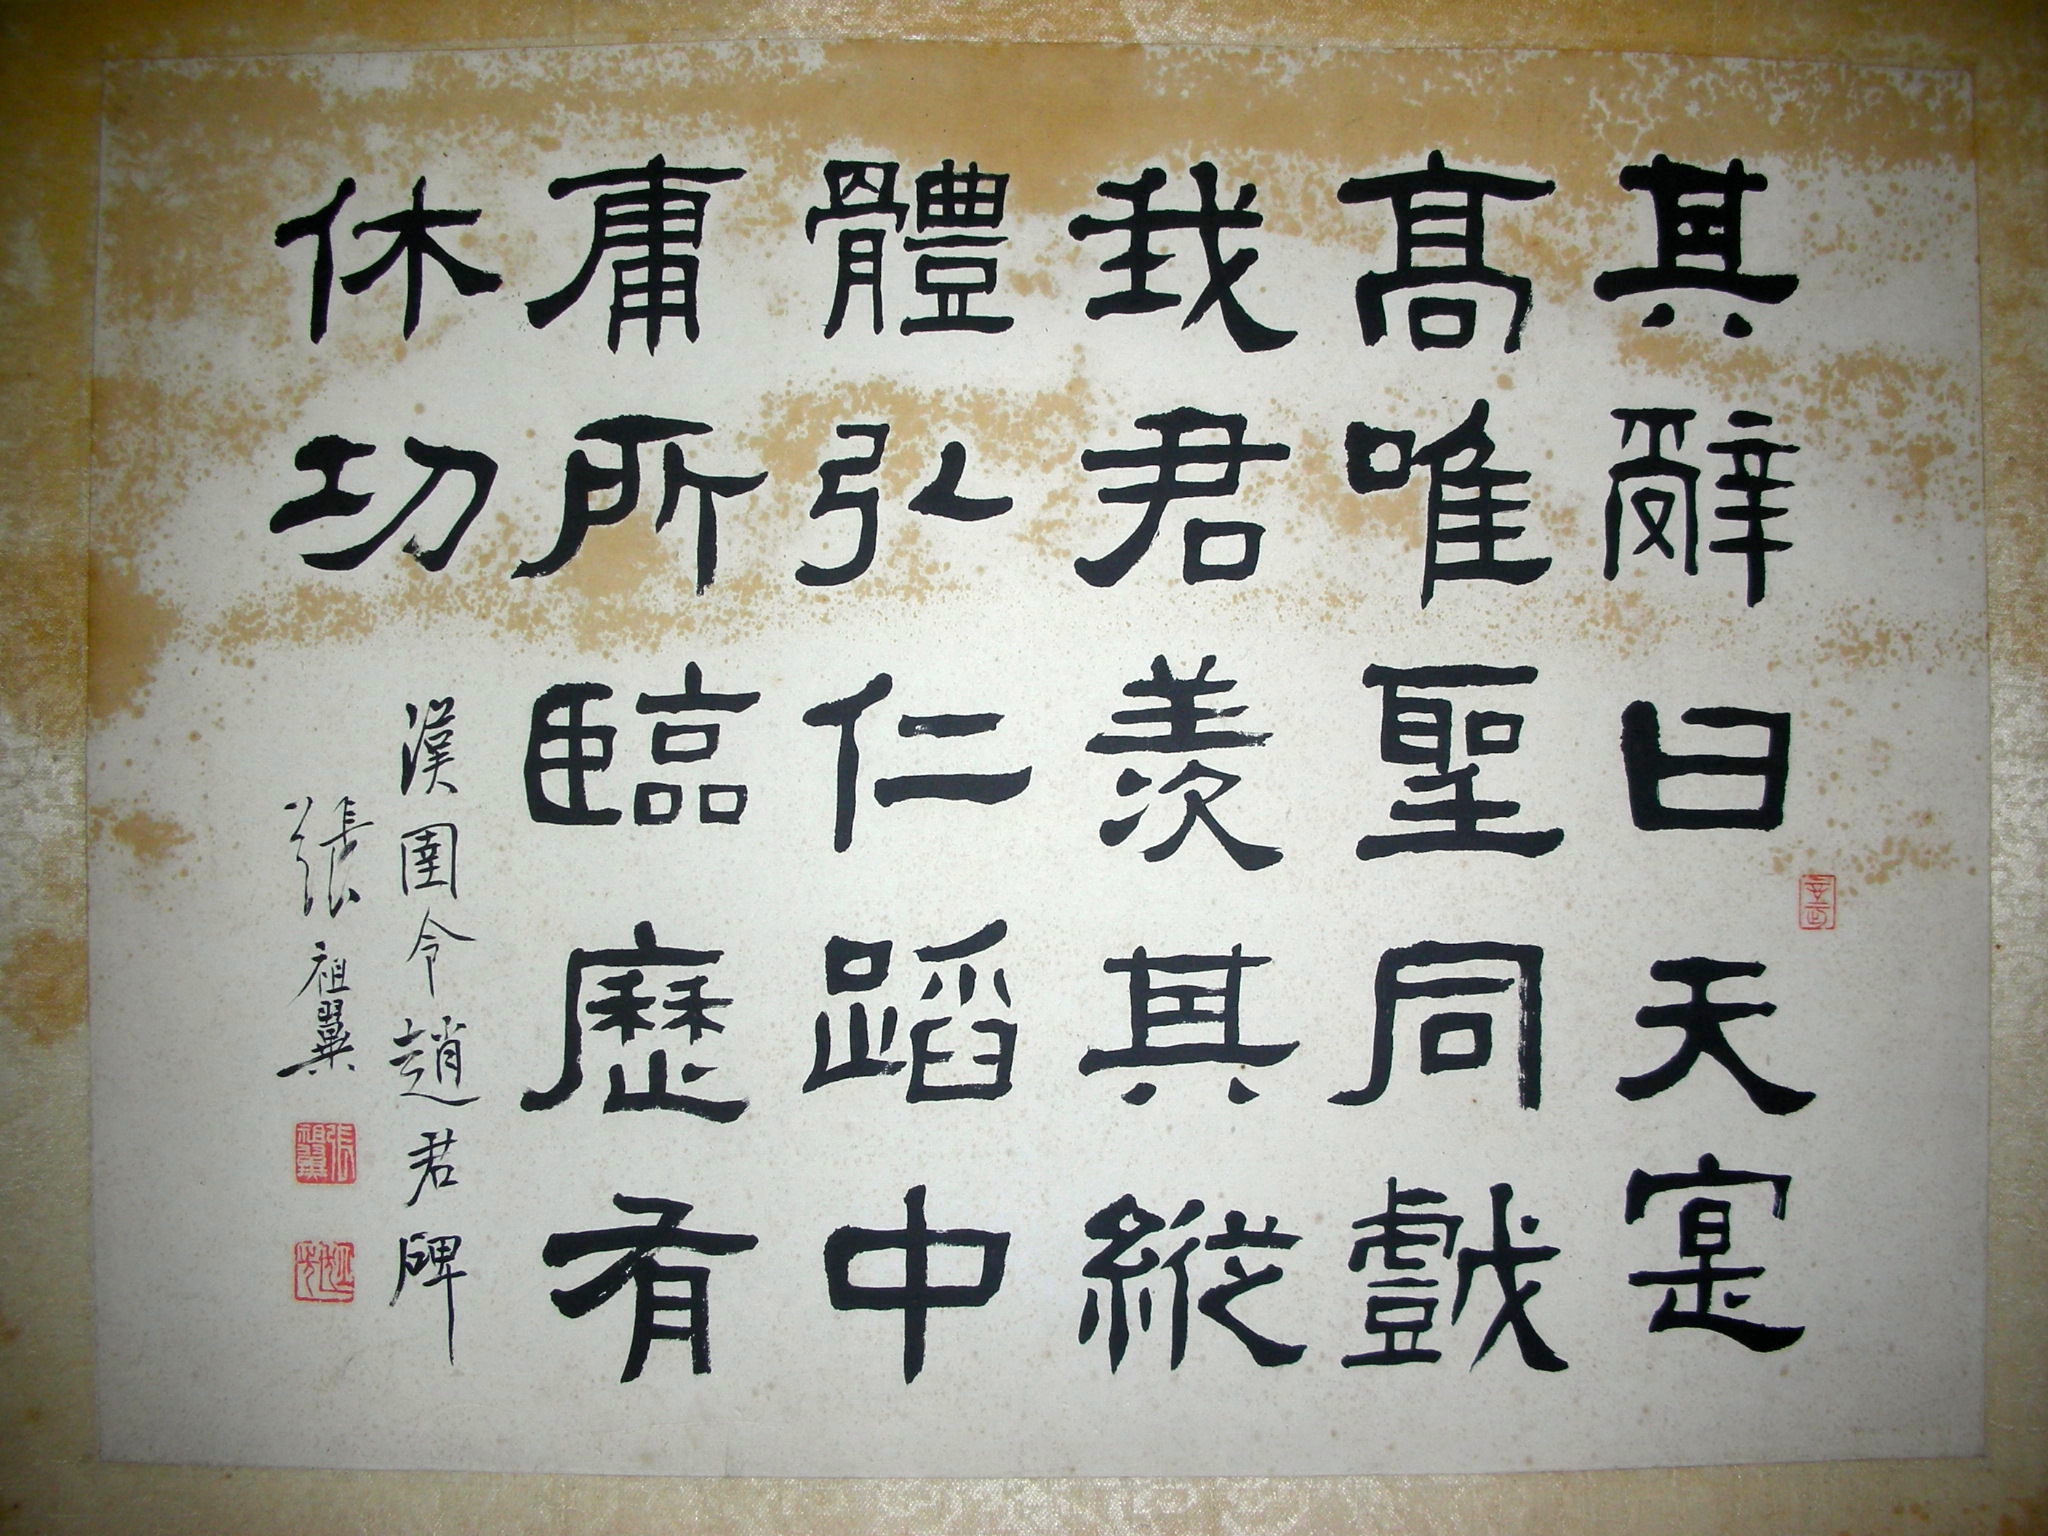 其辭曰天寔
高唯聖同戲
我君羡其縱
體弘仁蹈中
庸所臨歷有
休功
漢圉令趙君碑
張祖翼
張祖翼